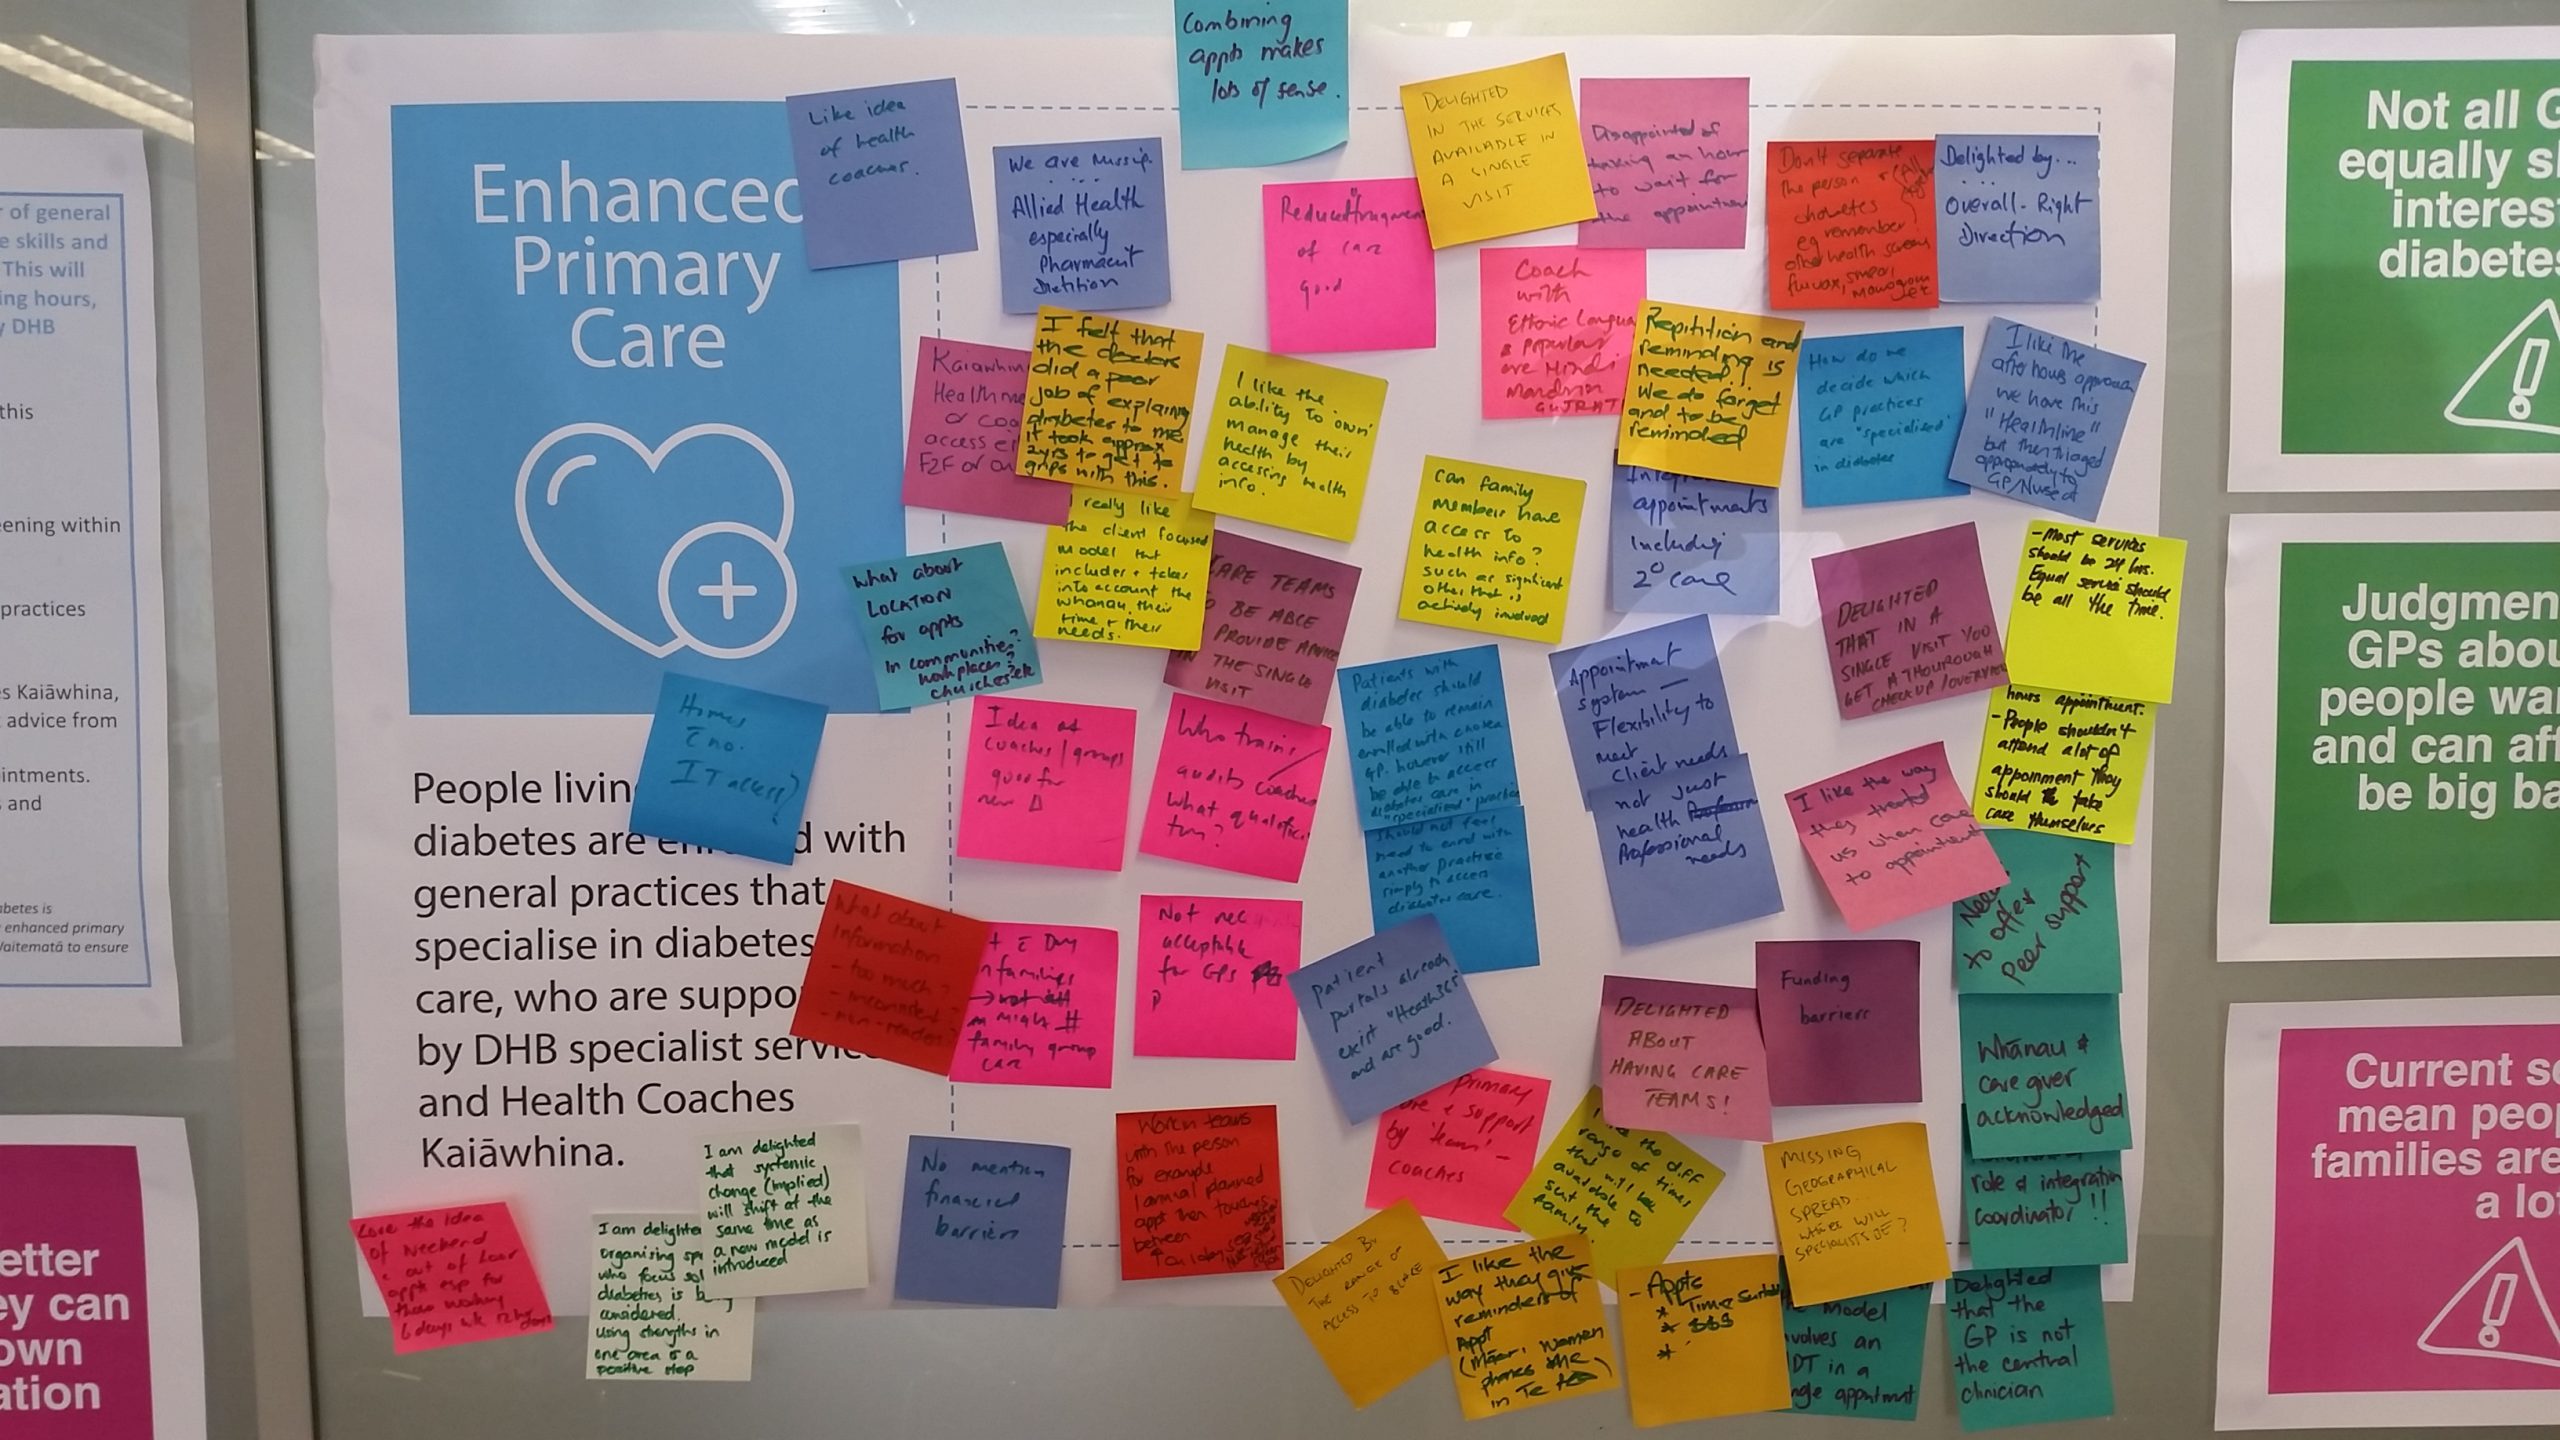 r of general
e skills and
This will
ing hours,
y DHB
this
ening within
practices
es Kaiāwhina,
t advice from
intments.
s and
abetes is
enhanced primary
Waitematā to ensure
etter
ey can
own
ation
Enhanced
Primary
Care
People living
diabetes are with
general practices that
specialise in diabetes
care, who are suppo
by DHB specialist service
and Health Coaches
Kaiāwhina.
Combining
appts makes
lots of sense.
Like idea
of health
coaches.
We are missing
...
Allied Health
especially
Pharmacist
Dietition
Reduced fragment
of care
good
DELIGHTED
IN THE SERVICES
AVAILABLE IN
A SINGLE
VISIT
Disappointed of
taking an hour
to wait for
the appointment
Don't separate
the person &
diabetes
eg remember
other health screens
fluvax, smear,
Delighted by...
...
Overall - Right
Direction
Coach
with
Ethnic Langua
& Popular
are Hindi
Mandrin
GUJRATI
Kaiawhin
Health
or coa
access ei
F2F or on
I felt that
the doctors
did a poor
job of explaining
diabetes to me
it took approx
2yrs to get to
grips with this.
I like the
ability to 'own'
manage their
health by
accessing health
info.
Repitition and
reminding is
needed!
We do forget
and to be
reminded
How do we
decide which
GP practices
are "specialised"
in diabetes
I like the
after hours approach
we have this
"Healthline"
but then triaged
appropriately to
GP/Nurse
I really like
the client focused
model that
includes + takes
into account the
whanau, their
time + their
needs.
can family
members have
access to
health info?
such as significant
other that is
actively involved
appointments
including
2° care
CARE TEAMS
TO BE ABLE
PROVIDE ADVICE
IN THE SINGLE
VISIT
What about
LOCATION
for appts
In communities?
workplaces?
churches etc
DELIGHTED
THAT IN A
SINGLE VISIT YOU
GET A THOUROUGH
CHECKUP/OVERVIEW
- Most services
should be 24 hrs.
Equal service should
be all the time.
hours appointment.
- People shouldn't
attend a lot of
appoinment they
should take
care themselves
Homes
c̄ no.
IT access?
Idea of
coaches/groups
good for
new
Who trains/
audits coaches
What qualific
Patients with
diabetes should
be able to remain
enrolled with chosen
GP. however still
be able to access
diabetes care in
"specialised" practice
should not feel
need to enrol with
another practice
simply to access
diabetes care.
Appointment
system —
Flexibility to
meet
Client needs
not just
health
Professional
needs
I like the way
they treated
us when came
to appointment
Need
to offer
Peer support
What about
information
- too much?
-
- non-readers?
families
might
family group
care
Not nec
acceptable
for GPs
Patient
portals already
exist "Health365"
and are good.
DELIGHTED
ABOUT
HAVING CARE
TEAMS!
Funding
barriers
Whānau &
care giver
acknowledged
role & integration
coordinator!!
primary
care & support
by 'team' -
coaches
the diff
range of times
that will be
available to
suit the
family.
MISSING
GEOGRAPHICAL
SPREAD.
WHERE WILL
SPECIALISTS BE?
I am delighted
that systemic
change (implied)
will shift at the
same time as
a new model is
introduced
I am delighted
organising
who focus
diabetes is
considered.
Using strengths in
one area is a
positive step
No mention
financial
barriers
with the person
for example
1 annual planned
appt then touches
between
Love the idea
of weekend
& out of hour
appts esp for
those working
6 days wk
DELIGHTED BY
THE RANGE OF
ACCESS TO
I like the
way they give
reminders of
Appt
(Māori women
phones me
in Te
- Appts
* Time
* $$$
*
model
volves an
DT in a
nge appointment
Delighted
that the
GP is not
the central
clinician
Not all G
equally s
interes
diabetes
Judgmen
GPs abou
people wa
and can aff
be big ba
Current se
mean peop
families are
a lo